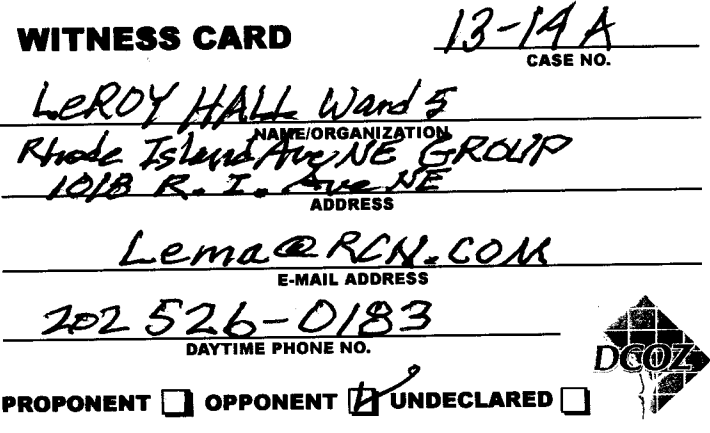 WITNESS CARD
13-14 A
CASE NO.
LeROY HALL Ward 5
NAME/ORGANIZATION
Rhode Island Ave NE GROUP
1018 R. I. Ave NE
ADDRESS
Lema@RCN.COM
E-MAIL ADDRESS
202 526-0183
DAYTIME PHONE NO.
DCOZ
PROPONENT ☐ OPPONENT ☑ UNDECLARED ☐